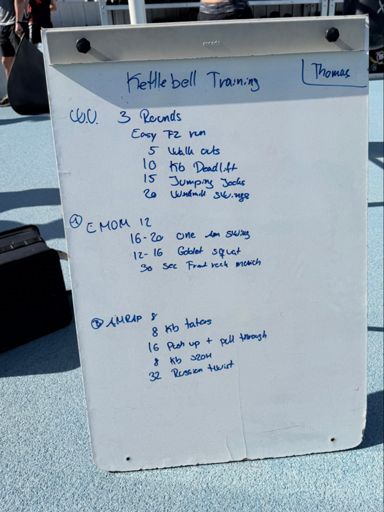 Kettlebell Training
Thomas
W.U. 3 Rounds
Easy Fz run
5 Walk outs
10 Kb Deadlift
15 Jumping Jacks
20 Windmill swings
A EMOM 12
16-20 one arm swing
12-16 Goblet squat
30 sec Front rack march
B AMRAP 8
8 Kb taters
16 Push up + pull through
8 Kb
32 Russian twist